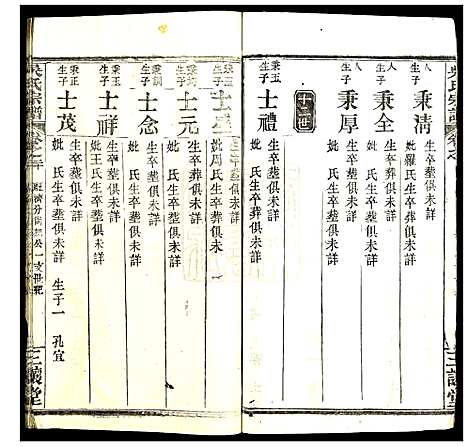 吳氏宗譜
卷之
三讓堂
秉清
妣羅氏生卒葬俱未詳
秉全
生卒葬俱未詳
妣 氏生卒葬俱未詳
秉厚
生卒葬俱未詳
妣 氏生卒葬俱未詳
十世
秉玉
生子
士禮
生卒葬俱未詳
妣 氏生卒葬俱未詳
生子
生卒葬俱未詳
妣周氏生卒葬俱未詳
生子
士元
生卒葬俱未詳
妣 氏生卒葬俱未詳
秉訓
生子
士念
生卒葬俱未詳
妣 氏生卒葬俱未詳
秉玉
生子
士祥
生卒葬俱未詳
妣王氏生卒葬俱未詳
秉正
生子
士茂
生卒葬俱未詳 生子一 孔宜
妣 氏生卒葬俱未詳
吳氏宗譜
三讓堂